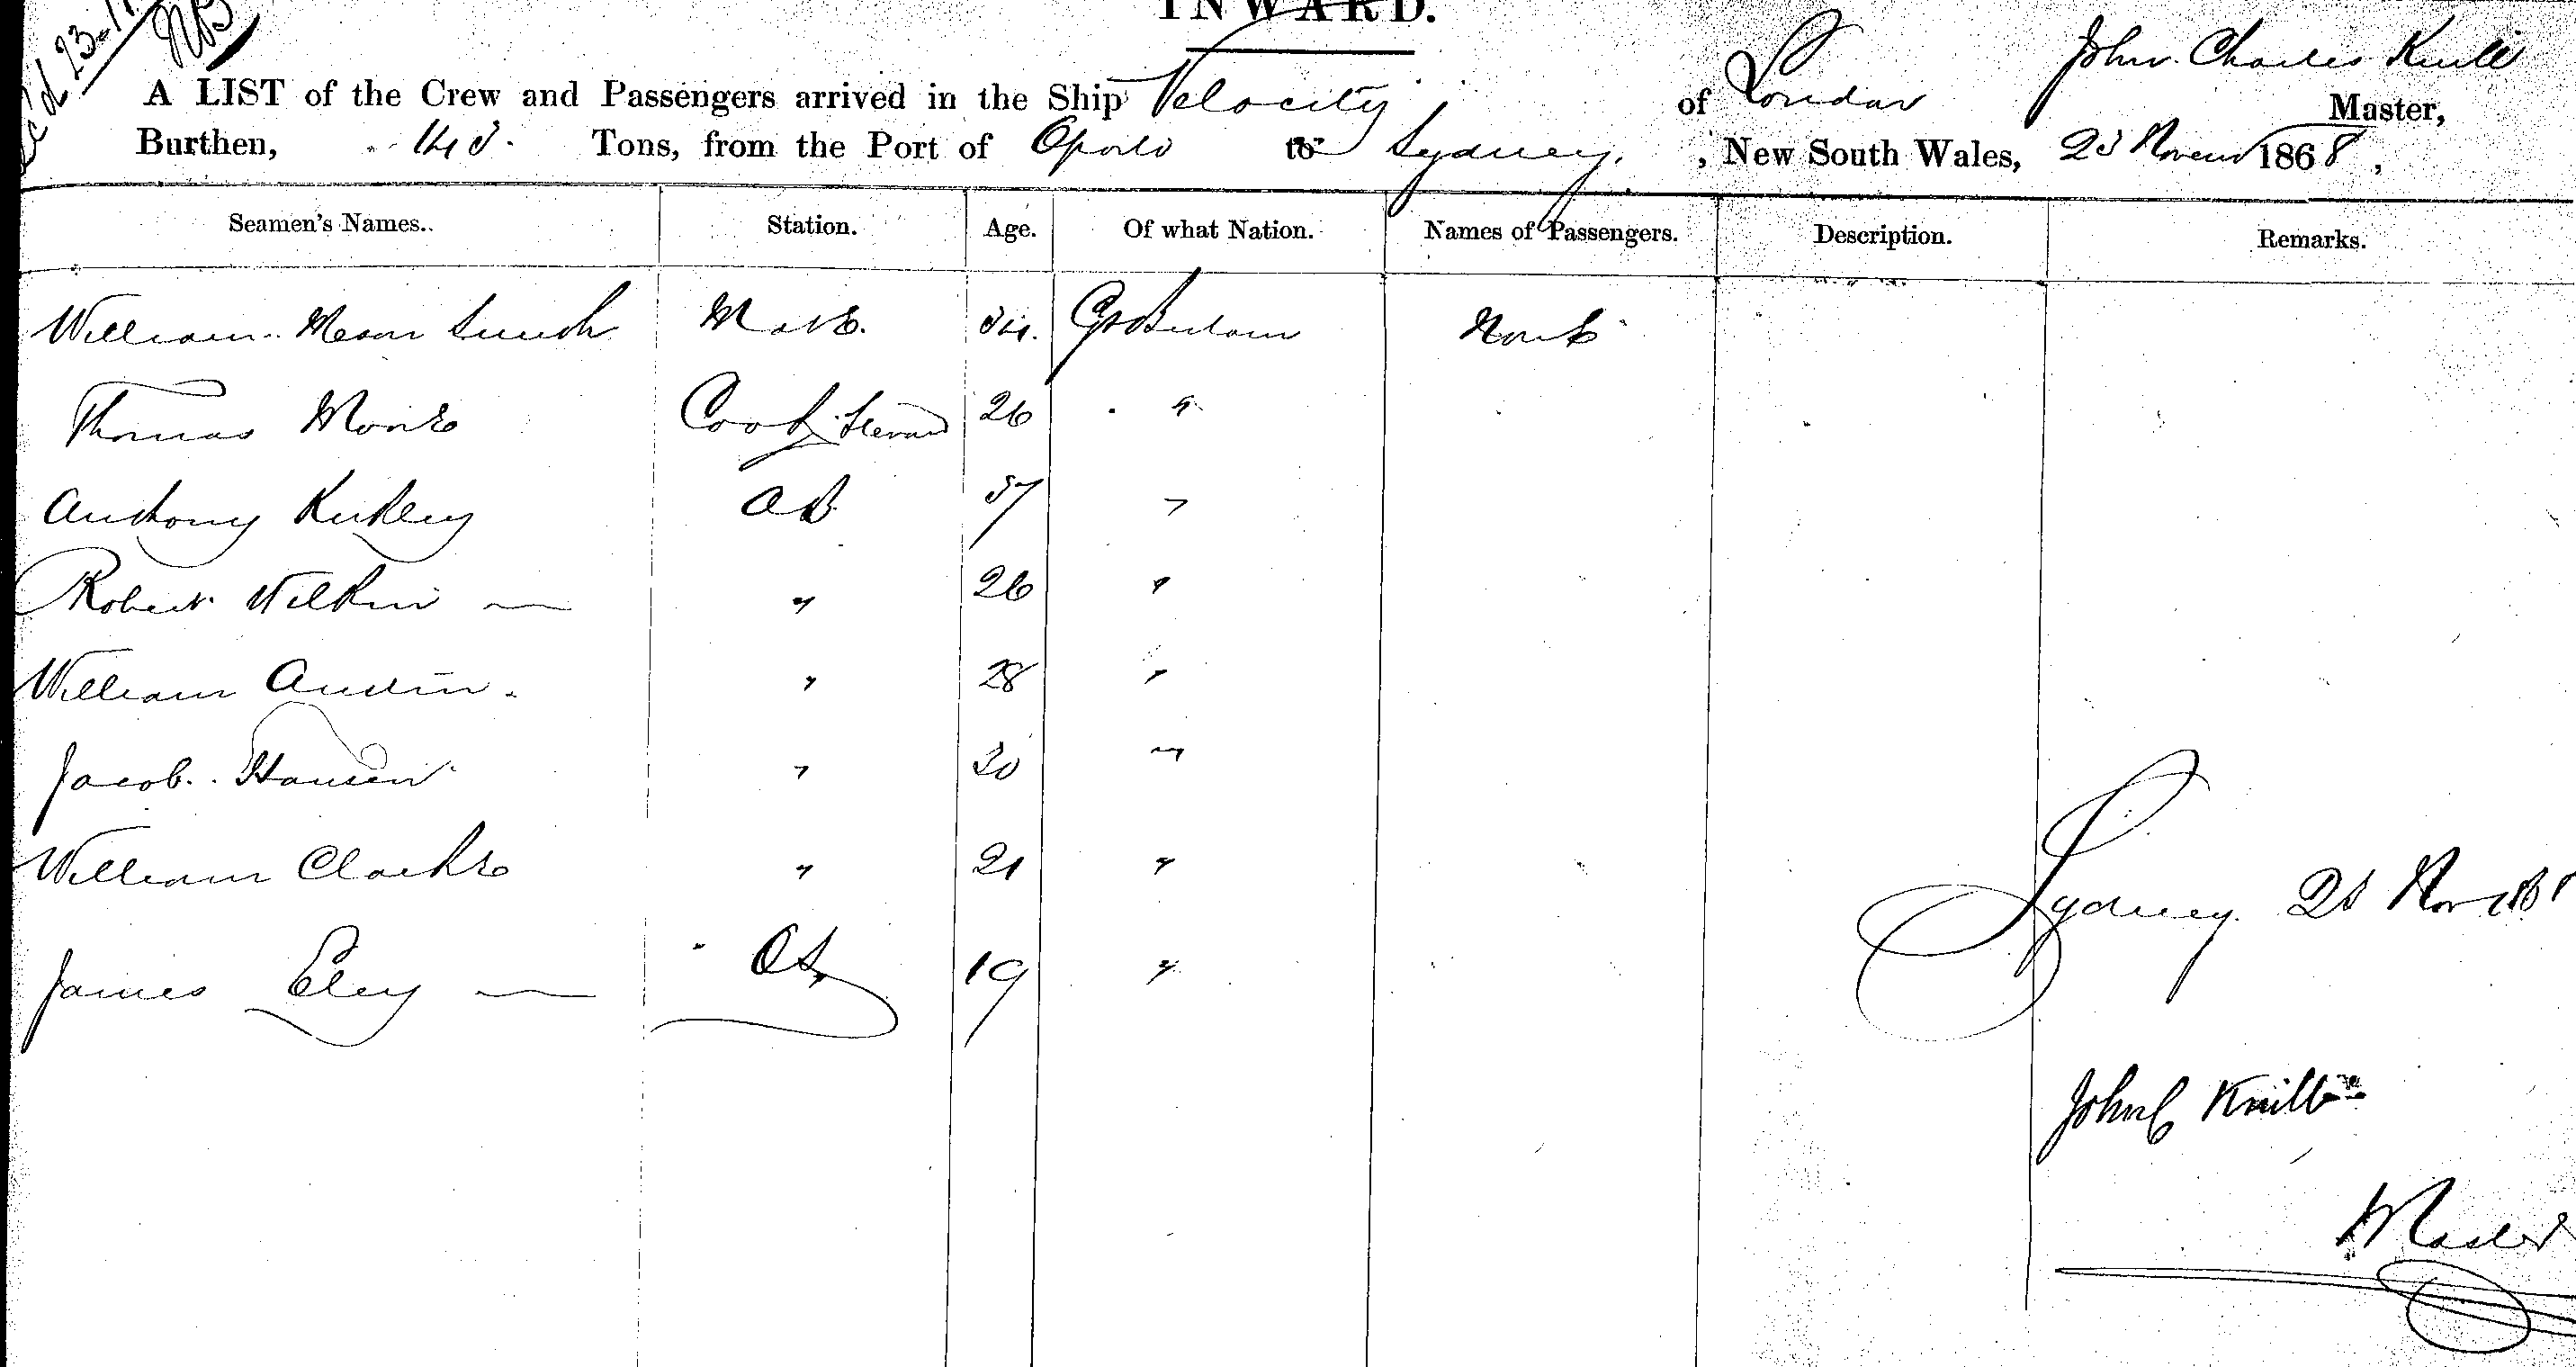 INWARD.
A LIST of the Crew and Passengers arrived in the Ship Velocity of London John Charles Knill Master,
Burthen, 143 Tons, from the Port of Oporto to Sydney, New South Wales, 23 Novemr 1868,
Seamen's Names. Station. Age. Of what Nation. Names of Passengers. Description. Remarks.
William Mate. 34. Gt Britain None
Thomas Moore Cook & Steward 26 "
Anthony Kirkley AB 37 "
Robert Wilkin — " 26 "
William Austin. " 28 "
Jacob Hansen " 30 "
William Clarke " 21 "
James Eley — OS 19 "
Sydney 23 Nov 1868
John C Knill
Master